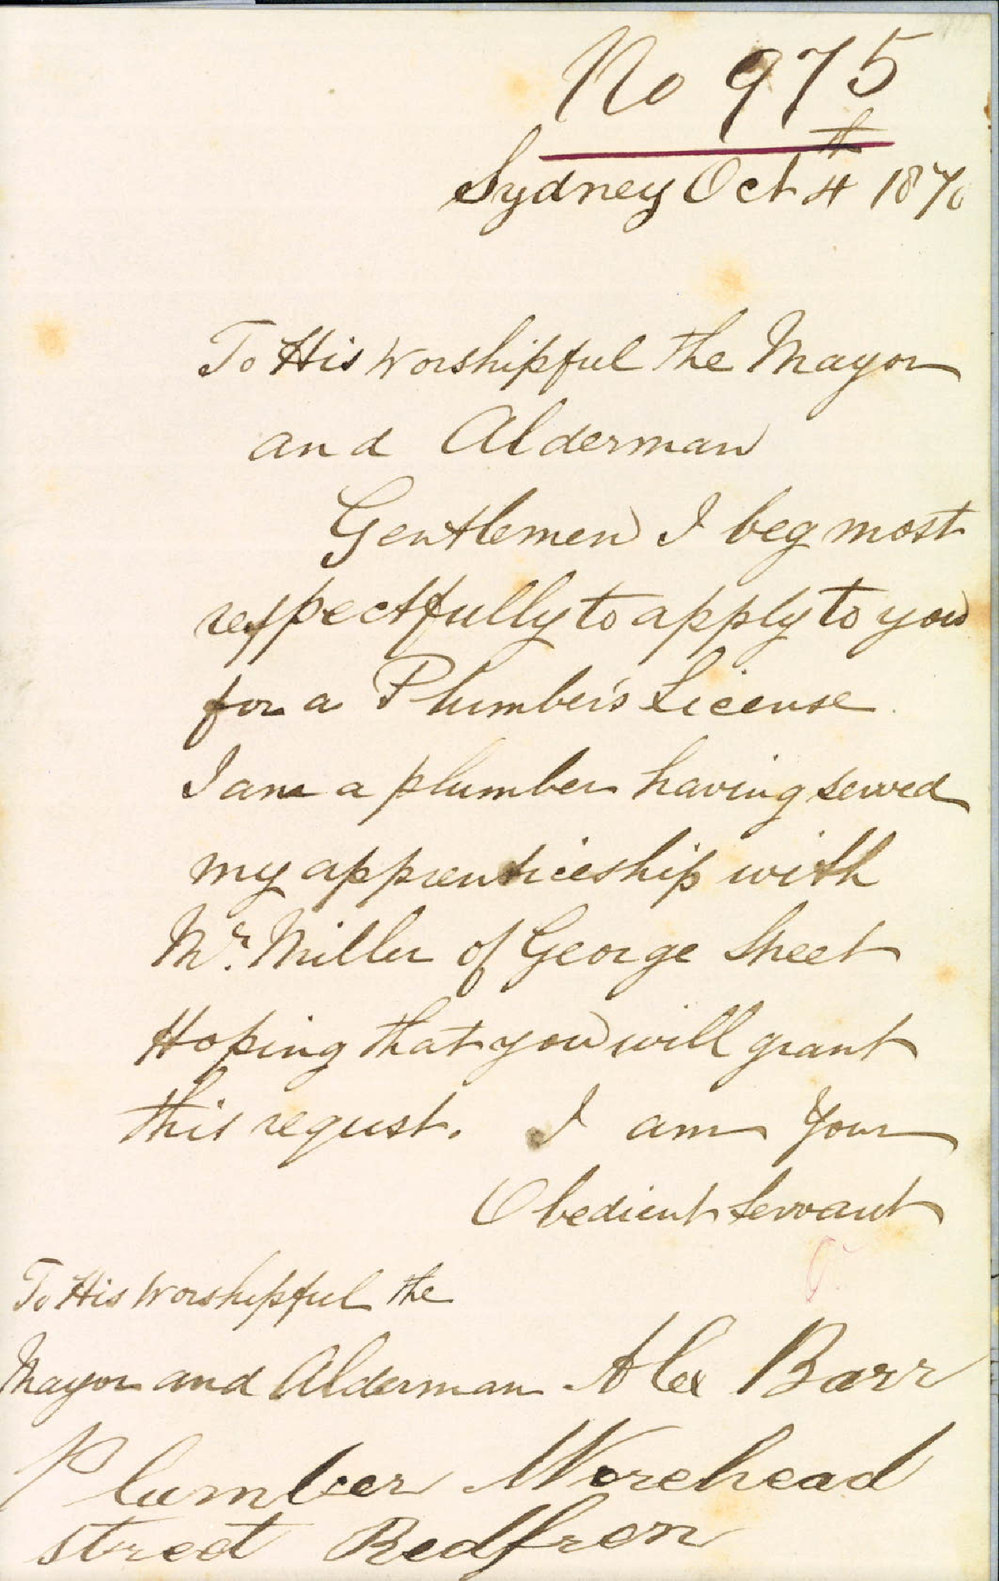 No 975
Sydney Oct 4th 1870
To His Worshipful the Mayor
and Alderman
Gentlemen I beg most
respectfully to apply to you
for a Plumber's License
I am a plumber having served
my apprenticeship with
Mr. Miller of George Street
Hoping that you will grant
this requst. I am Your
Obedient Servant
To His Worshipful the
Mayor and Alderman Alex Barr
Plumber Morehead
street Redfren